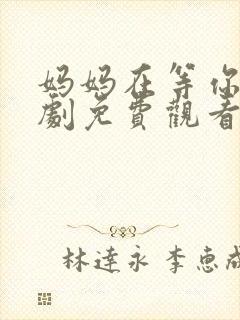 妈妈在等你
劇免費觀看
林達永 李惠成